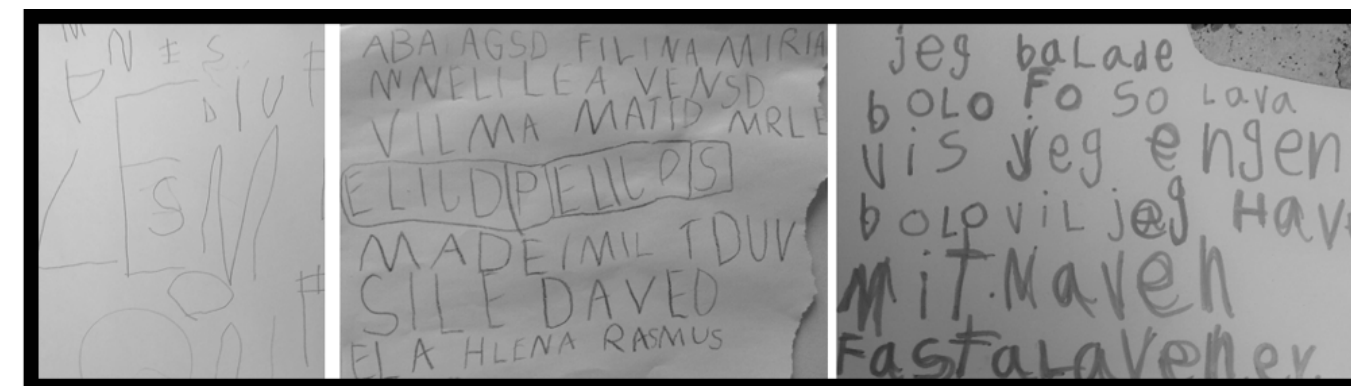 M N I S
P D I U F
S N
ABA AGSD FILINA MIRIA
NNELILEA VENSD
VILMA MATID MRLE
ELILDPELILPS
MADEIMIL TDUV
SILE DAVED
ELA HLENA RASMUS
jeg baLade
bOLO FO SO Lava
vis jeg engen
bOLO viL jeg Hav
MiT Maven
FasTaLavener